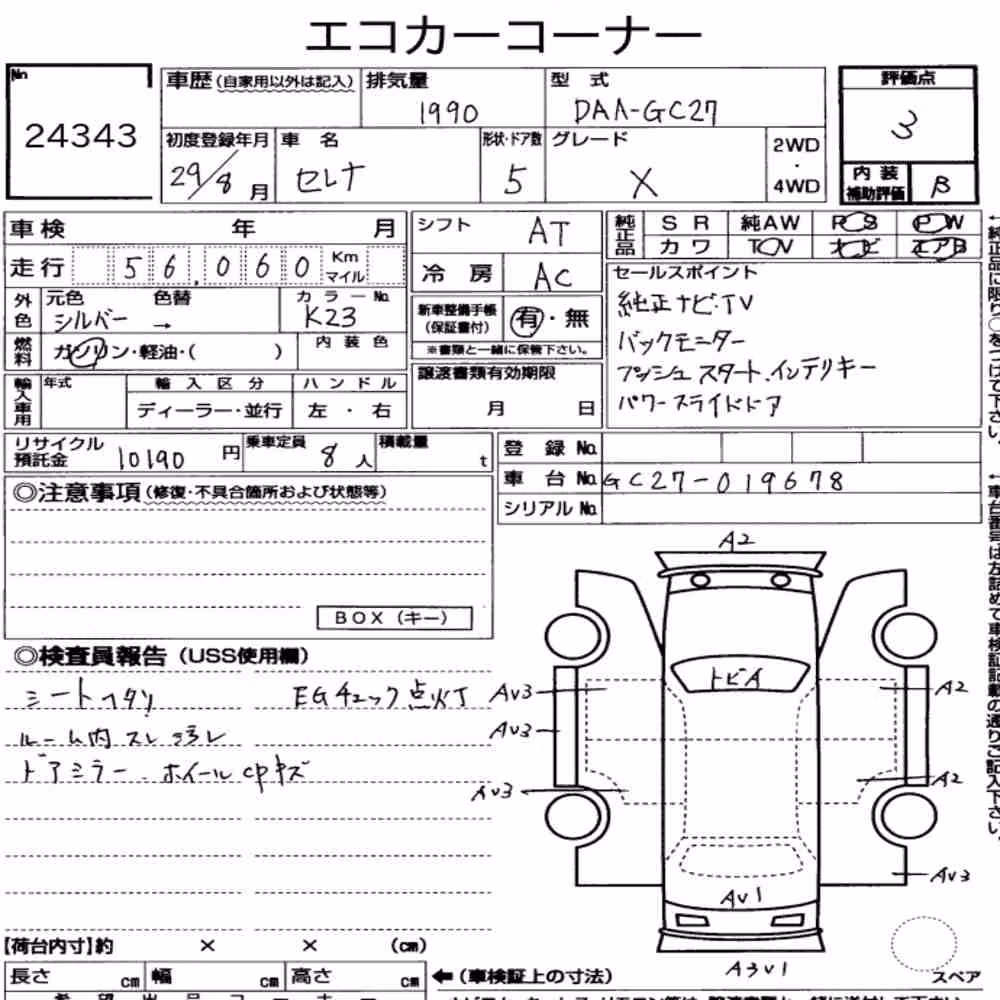 エコカーコーナー
No 24343
車歴(自家用以外は記入) 排気量 1990
型式 DAA-GC27
評価点 3
初度登録年月 29/8月
車名 セレナ
形状・ドア数 5
グレード X
2WD・4WD
内装補助評価 B
車検 年 月
走行 56,060 Km マイル
外色 元色 シルバー → 色替
カラーNo. K23
燃料 ガソリン・軽油・( )
内装色
輸入車用 年式 輸入区分 ディーラー・並行 ハンドル 左・右
シフト AT
冷房 AC
新車整備手帳(保証書付) 有・無
※書類と一緒に保管下さい。
譲渡書類有効期限 月 日
純正品 SR 純AW PS PW
カワ TV ナビ エアB
セールスポイント
純正ナビ・TV
バックモニター
プッシュスタート.インテリキー
パワースライドドア
←純正品に限り○をつけて下さい。
リサイクル預託金 10190円
乗車定員 8人
積載量 t
登録No.
車台No. GC27-019678
シリアルNo.
←車台番号は左詰めで車検証記載の通りご記入下さい。
◎注意事項(修復・不具合箇所および状態等)
BOX(キー)
◎検査員報告(USS使用欄)
シートヘタリ EGチェック点灯
ルーム内スレ汚レ
ドアミラー.ホイールCPキズ
A2
トビA
AV3 A2
AV3
AV3 A2
AV3
AV1
A3V1
スペア
【荷台内寸】約 × × (cm)
長さ cm 幅 cm 高さ cm
←(車検証上の寸法)